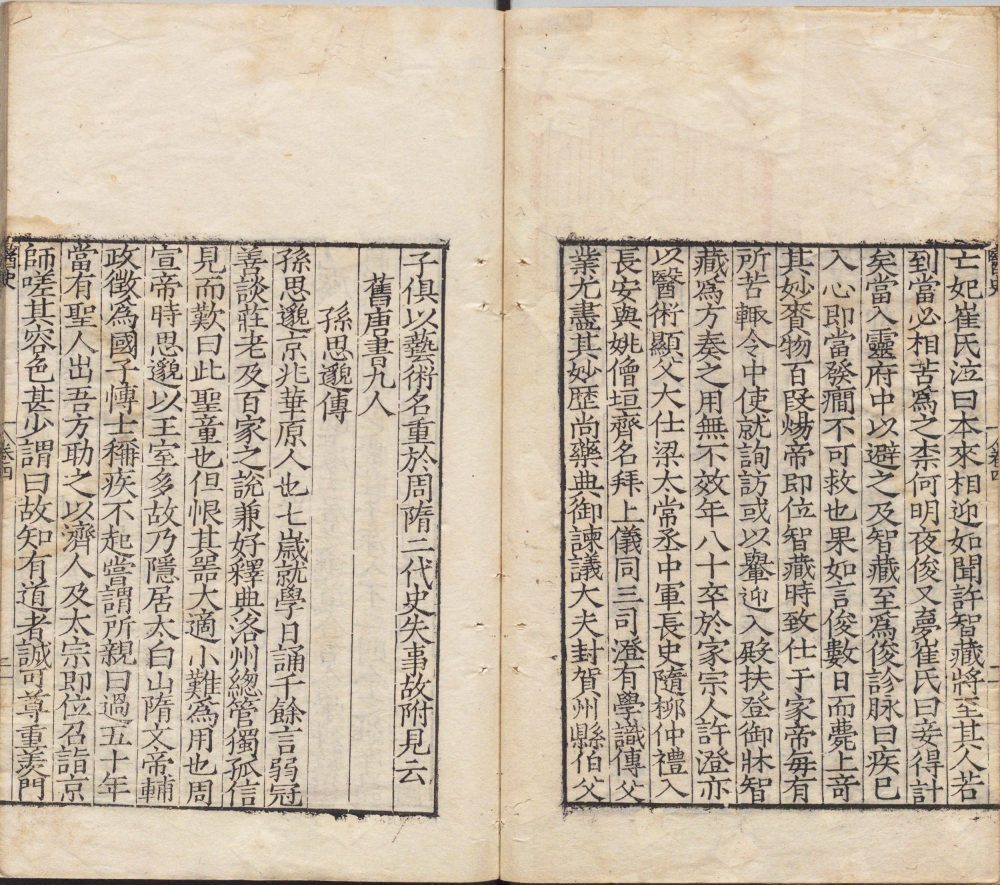 亡妃崔氏泣曰本來相迎如聞許智藏將至其人若
到當必相苦爲之柰何明夜俊又夢崔氏曰妾得計
矣當入靈府中以避之及智藏至爲俊診脉曰疾已
入心即當發癎不可救也果如言俊數日而薨上竒
其妙賚物百段煬帝即位智藏時致仕于家帝每有
所苦輙令中使就詢訪或以轝迎入殿扶登御牀智
藏爲方奏之用無不效年八十卒於家宗人許澄亦
以醫術顯父大仕梁太常丞中軍長史隨栁仲禮入
長安與姚僧垣齊名拜上儀同三司澄有學識傳父
業尤盡其妙歴尚藥典御諫議大夫封賀州縣伯父
子俱以藝術名重於周隋二代史失事故附見云
舊唐書九人
孫思邈傳
孫思邈京兆華原人也七歲就學日誦千餘言弱冠
善談莊老及百家之說兼好釋典洛州總管獨孤信
見而歎曰此聖童也但恨其噐大適小難為用也周
宣帝時思邈以王室多故乃隱居太白山隋文帝輔
政徵為國子博士稱疾不起嘗謂所親曰過五十年
當有聖人出吾方助之以濟人及太宗即位召詣京
師嗟其容色甚少謂曰故知有道者誠可尊重羡門